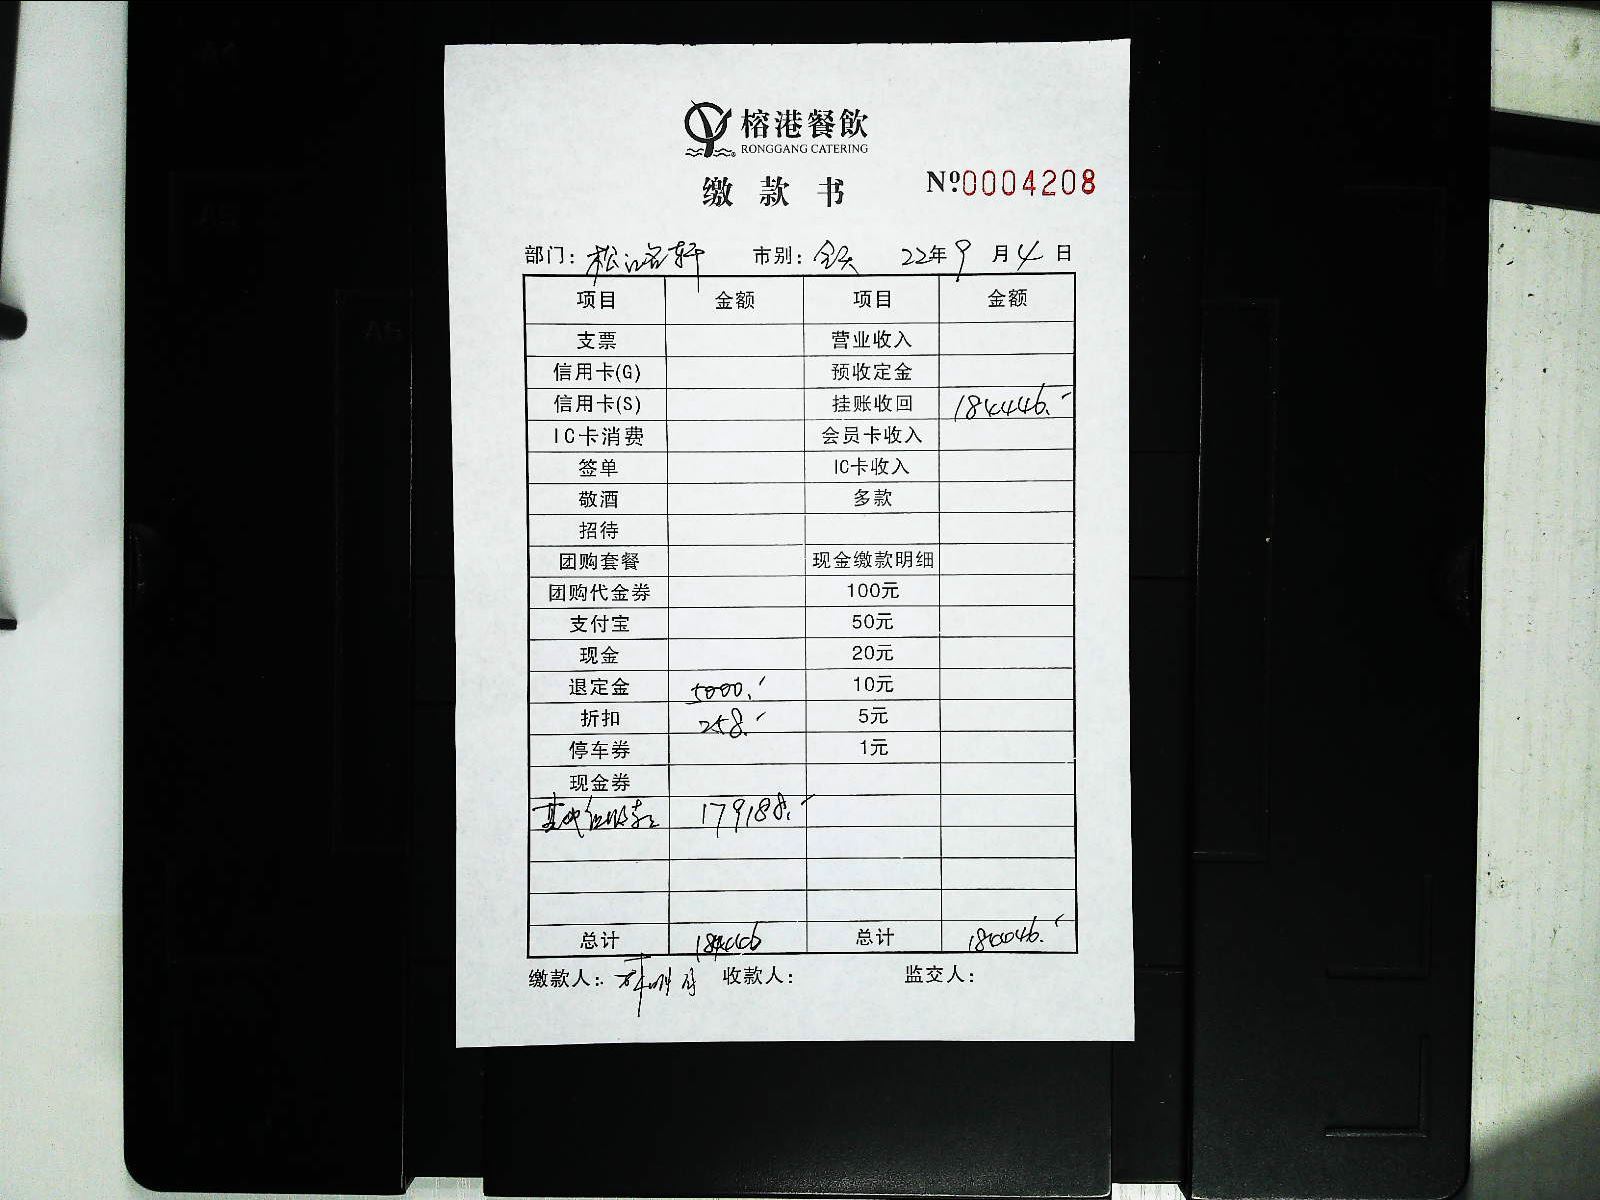 榕港餐飲
RONGGANG CATERING
缴款书 Nº0004208
部门: 松江名轩 市别: 全天 22年9月4日
项目 金额 项目 金额
支票 营业收入
信用卡(G) 预收定金
信用卡(S) 挂账收回 184446.-
IC卡消费 会员卡收入
签单 IC卡收入
敬酒 多款
招待
团购套餐 现金缴款明细
团购代金券 100元
支付宝 50元
现金 20元
退定金 5000.- 10元
折扣 258.- 5元
停车券 1元
现金券
179188.-
总计 184446 总计 184446.-
缴款人: 收款人: 监交人: